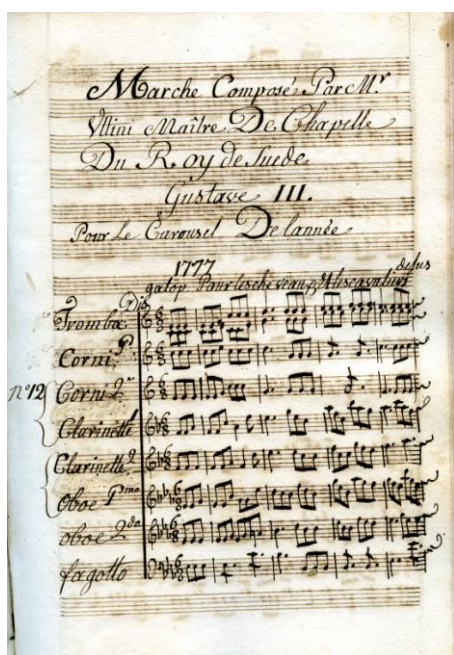 Marche Composé Par M.r
Uttini Maître De Chapelle
Du Roy de Suede
Gustave III.
Pour Le Carousel De lannée
1777
galop Pour les chevaux
desus
2 Trombe
Corni P.
Corni 2.
n.o 12
Clarinette 1
Clarinette 2
Oboe P.mo
oboe 2.do
fagotto